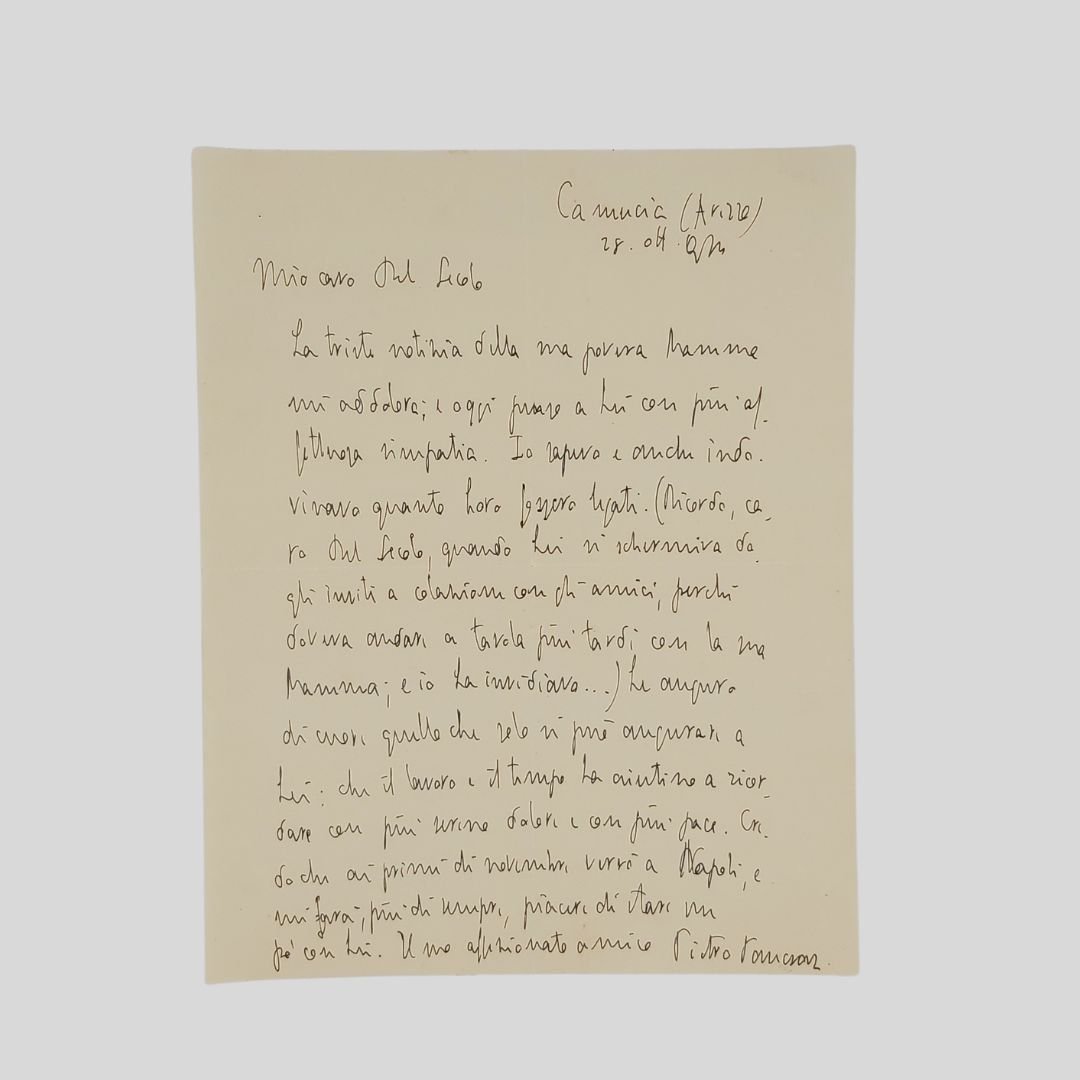 Camucia (Arezzo)
28. ott.
Mio caro Del Secolo
La triste notizia della sua povera Mamma
mi addolora; e oggi penso a Lei con più af-
fettuosa simpatia. Io sapevo e anche indo-
vinavo quanto loro fossero legati. (Ricordo, ca-
ro Del Secolo, quando Lei si schermiva da
gli inviti a colazione con gli amici, perché
doveva andare a tavola più tardi con la sua
Mamma; e io La invidiavo...) Le auguro
di cuore quello che solo si può augurare a
Lei: che il lavoro e il tempo La aiutino a ricor-
dare con più sereno dolore e con più pace. Cre-
do che ai primi di novembre verrò a Napoli, e
mi farà, più di sempre, piacere di stare un
po' con Lei. Il suo affezionato amico Pietro Pancrazi